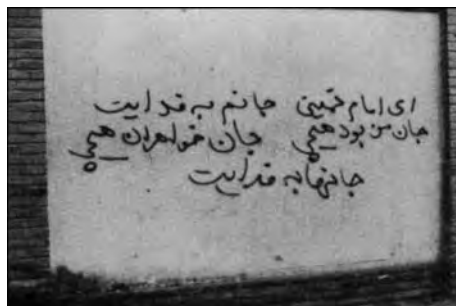 ای امام خمینی جانم به فدایت
جان من بود هیچ جان خواهران هیچ
جانها به فدایت